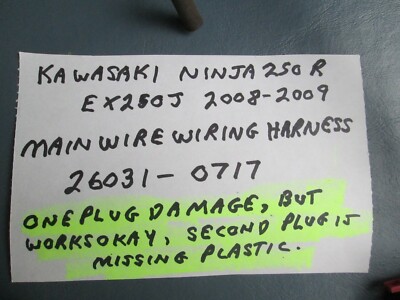 KAWASAKI NINJA 250 R
EX250J 2008-2009
MAIN WIRE WIRING HARNESS
26031-0717
ONE PLUG DAMAGE, BUT
WORKS OKAY, SECOND PLUG IS
MISSING PLASTIC.